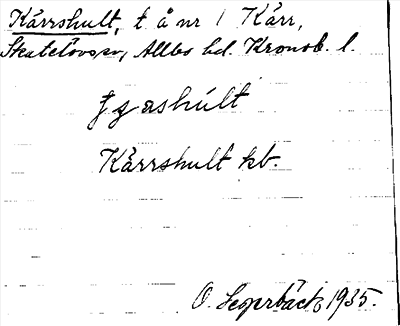 Kärrshult, t å nr 1 Kärr,
Skatelövs sn, Allbo hd. Kronob. l.
Kärrshult kb.
O. Segerbäck 1935.